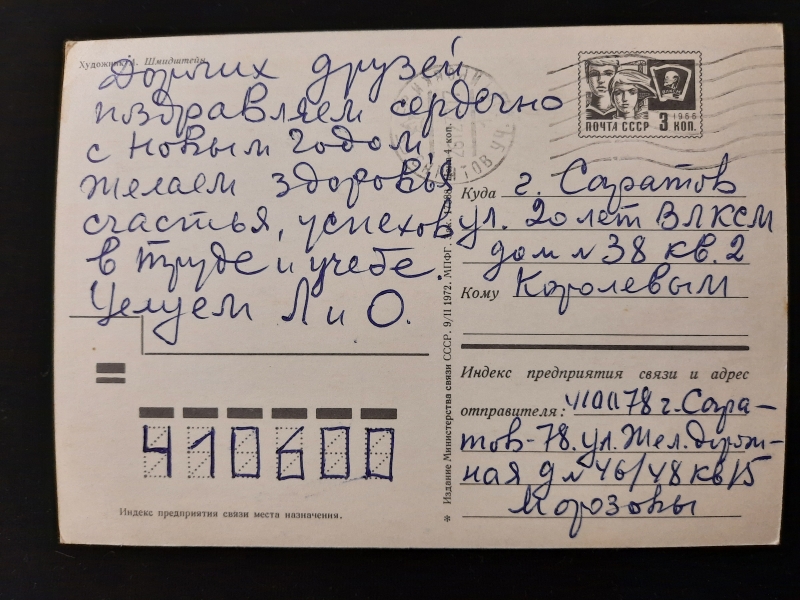 Художник И. Шмидштейн
Дорогих друзей
поздравляем сердечно
с Новым Годом,
желаем здоровья
счастья, успехов
в труде и учебе.
Целуем Л и О.
1966
ПОЧТА СССР 3 КОП.
Куда г. Саратов
ул. 20 лет ВЛКСМ
дом № 38 кв. 2
Кому Королевым
Индекс предприятия связи и адрес
отправителя: 410078 г. Сара-
тов-78. ул. Жел. дорож-
ная д № 46/48 кв 15
Морозовы
410600
Индекс предприятия связи места назначения.
* Издание Министерства связи СССР. 9/II 1972. МПФГ. Цена 4 коп.